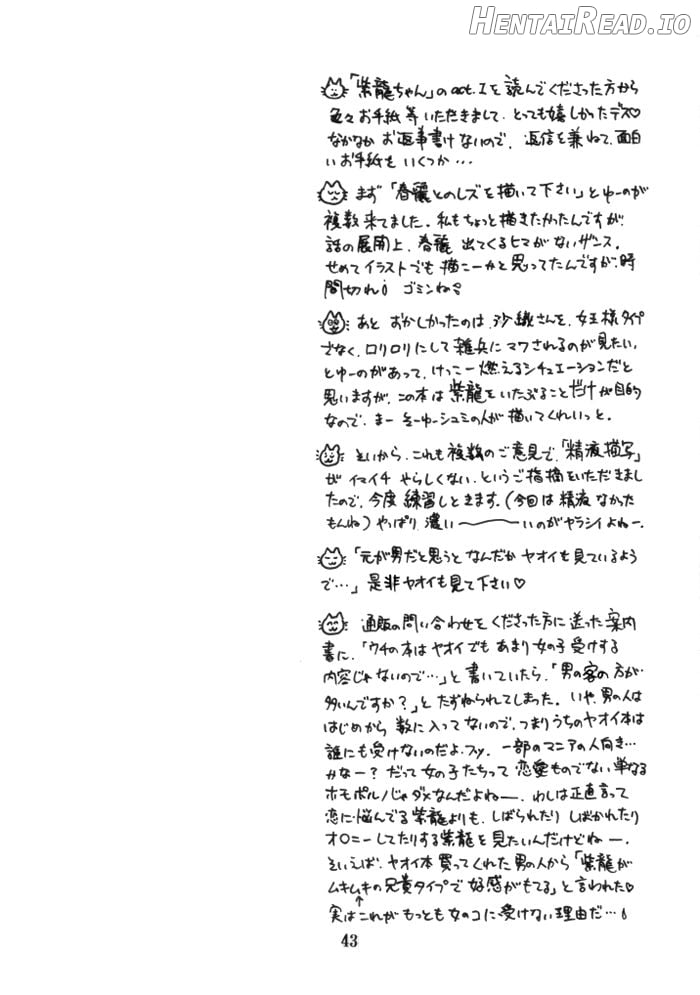 HENTAIREAD.IO
「紫龍ちゃん」のact.Iを読んでくださった方から
色々お手紙等いただきまして、とっても嬉しかったデス♡
なかなかお返事書けないので、返信を兼ねて、面白
いお手紙をいくつか…
まず「春麗とのレズを描いて下さい」とゆーのが
複数来てました。私もちょっと描きたかったんですが、
話の展開上、春麗 出てくるヒマがないザンス。
せめてイラストでも描こーかと思ってたんですが、時
間切れ! ゴミンね
あと おかしかったのは、沙織さんを、女王様タイプ
でなく、ロリロリにして雑兵にマワされるのが見たい、
とゆーのがあって、けっこー燃えるシチュエーションだと
思いますが、この本は紫龍をいたぶることだけが目的
なので、まー そーゆーシュミの人が描いてくれいっと。
そいから、これも複数のご意見で、「精液描写」
がイマイチやらしくない、というご指摘をいただきまし
たので、今度 練習しときます。(今回は精液なかった
もんね)やっぱり、濃い〜〜いのがヤラシイよねー。
「元が男だと思うとなんだかヤオイを見ているよう
で…」是非ヤオイも見て下さい♡
通販の問い合わせをくださった方に送った案内
書に、「ウチの本はヤオイでもあまり女の子受けする
内容じゃないので…」と書いていたら、「男の客の方が
多いんですか?」とたずねられてしまった。いや、男の人は
はじめから 数に入ってないので、つまりうちのヤオイ本は
誰にも受けないのだよ、フッ。一部のマニアの人向き…
かなー? だって女の子たちって 恋愛ものでない単なる
ホモポルノじゃダメなんだよねー。わしは正直言って
恋に悩んでる紫龍よりも、しばられたりしばかれたり
オ○ニーしてたりする紫龍を見たいんだけどねー。
そいえば、ヤオイ本買ってくれた男の人から「紫龍が
ムキムキの兄貴タイプで好感がもてる」と言われた♡
↑
実はこれがもっとも女のコに受けない理由だ…
43